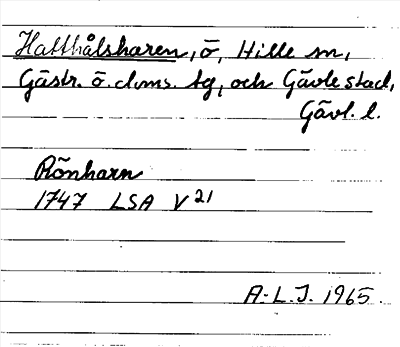 Hatthålsharen, ö, Hille sn,
Gästr. ö. dms. tg, och Gävle stad,
Gävl. l.
Rönharn
1747 LSA V 21
A.L.J. 1965.